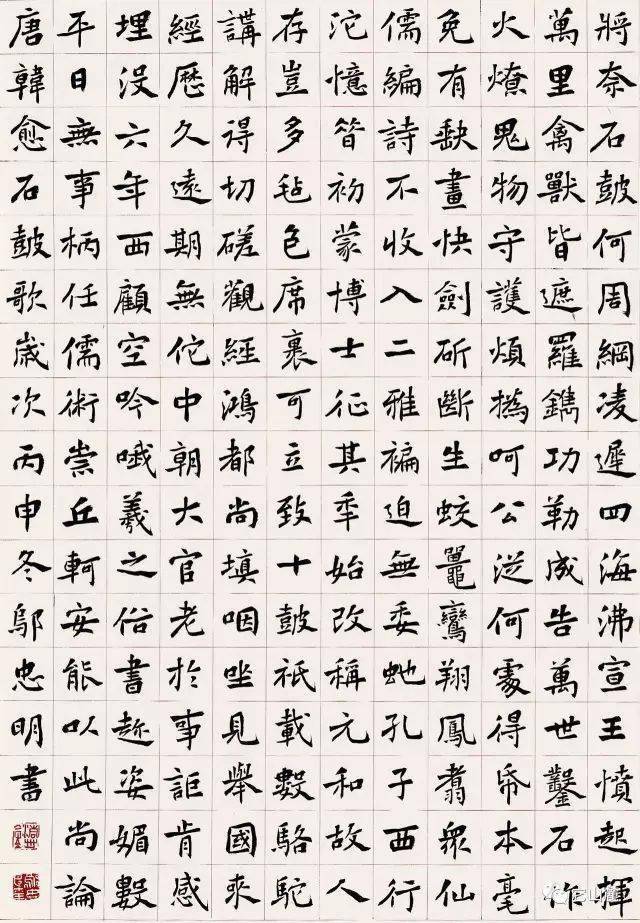 將奈石鼓何周綱凌遲四海沸宣王憤起揮
萬里禽獸皆遮羅鐫功勒成告萬世鑿石作
火燎鬼物守護煩撝呵公從何處得紙本毫
免有缺畫快劍斫斷生蛟鼉鸞翔鳳翥眾仙
儒編詩不收入二雅褊迫無委蛇孔子西行
沱憶昔初蒙博士征其年始改稱元和故人
存豈多氈包席裹可立致十鼓祇載數駱駝
講解得切磋觀經鴻都尚填咽坐見舉國來
經歷久遠期無佗中朝大官老於事詎肯感
埋沒六年西顧空吟哦羲之俗書趁姿媚數
平日無事柄任儒術崇丘軻安能以此尚論
唐韓愈石鼓歌歲次丙申冬鄔忠明書